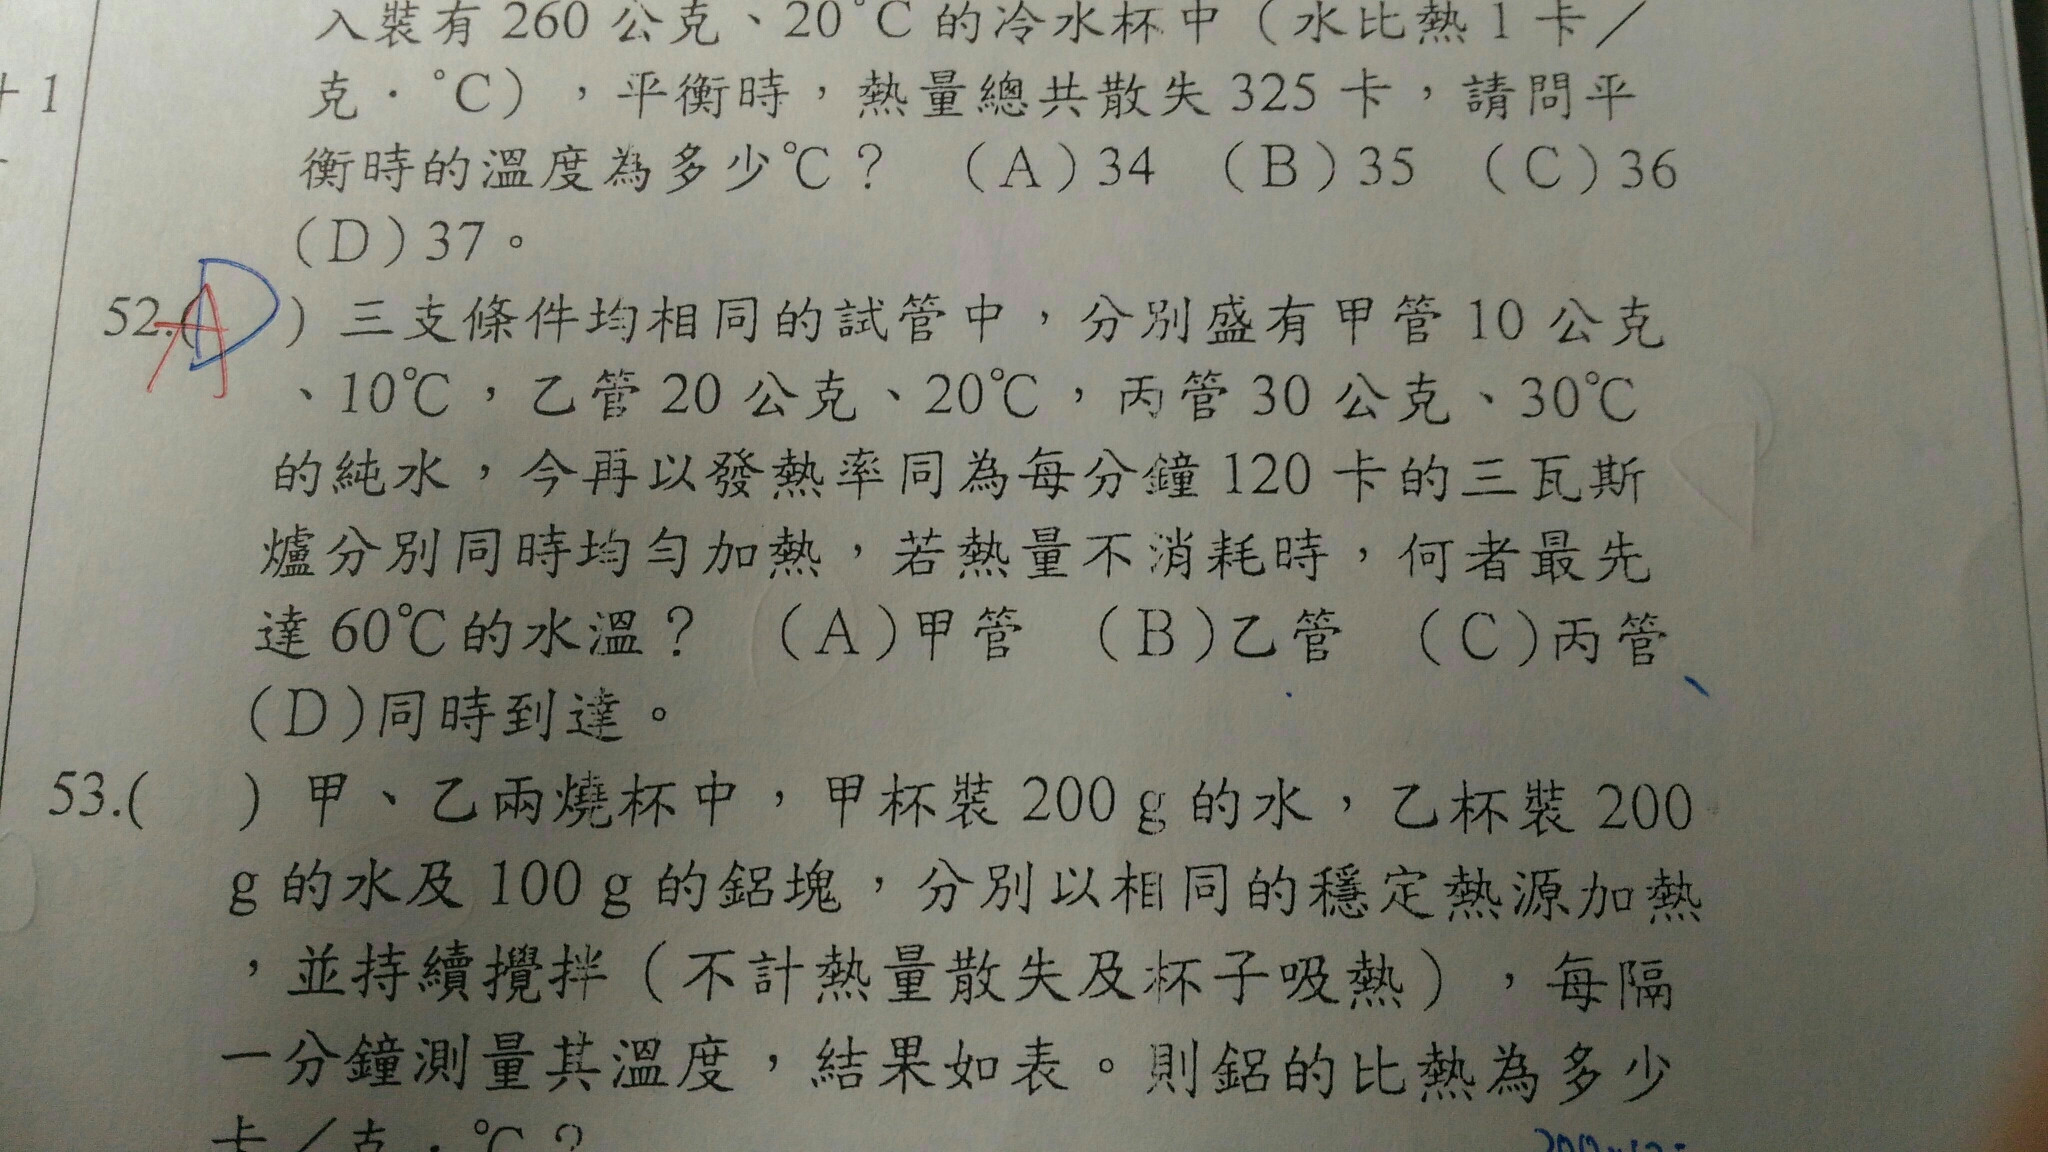 入裝有 260 公克、20℃ 的冷水杯中（水比熱 1 卡／
+ 1
克．℃），平衡時，熱量總共散失 325 卡，請問平
衡時的溫度為多少℃？ （A）34 （B）35 （C）36
（D）37。
52.(D A) 三支條件均相同的試管中，分別盛有甲管 10 公克
、10℃，乙管 20 公克、20℃，丙管 30 公克、30℃
的純水，今再以發熱率同為每分鐘 120 卡的三瓦斯
爐分別同時均勻加熱，若熱量不消耗時，何者最先
達 60℃的水溫？ （A）甲管 （B）乙管 （C）丙管
（D）同時到達。
53.( ) 甲、乙兩燒杯中，甲杯裝 200 g 的水，乙杯裝 200
g 的水及 100 g 的鋁塊，分別以相同的穩定熱源加熱
，並持續攪拌（不計熱量散失及杯子吸熱），每隔
一分鐘測量其溫度，結果如表。則鋁的比熱為多少
卡／克．℃？